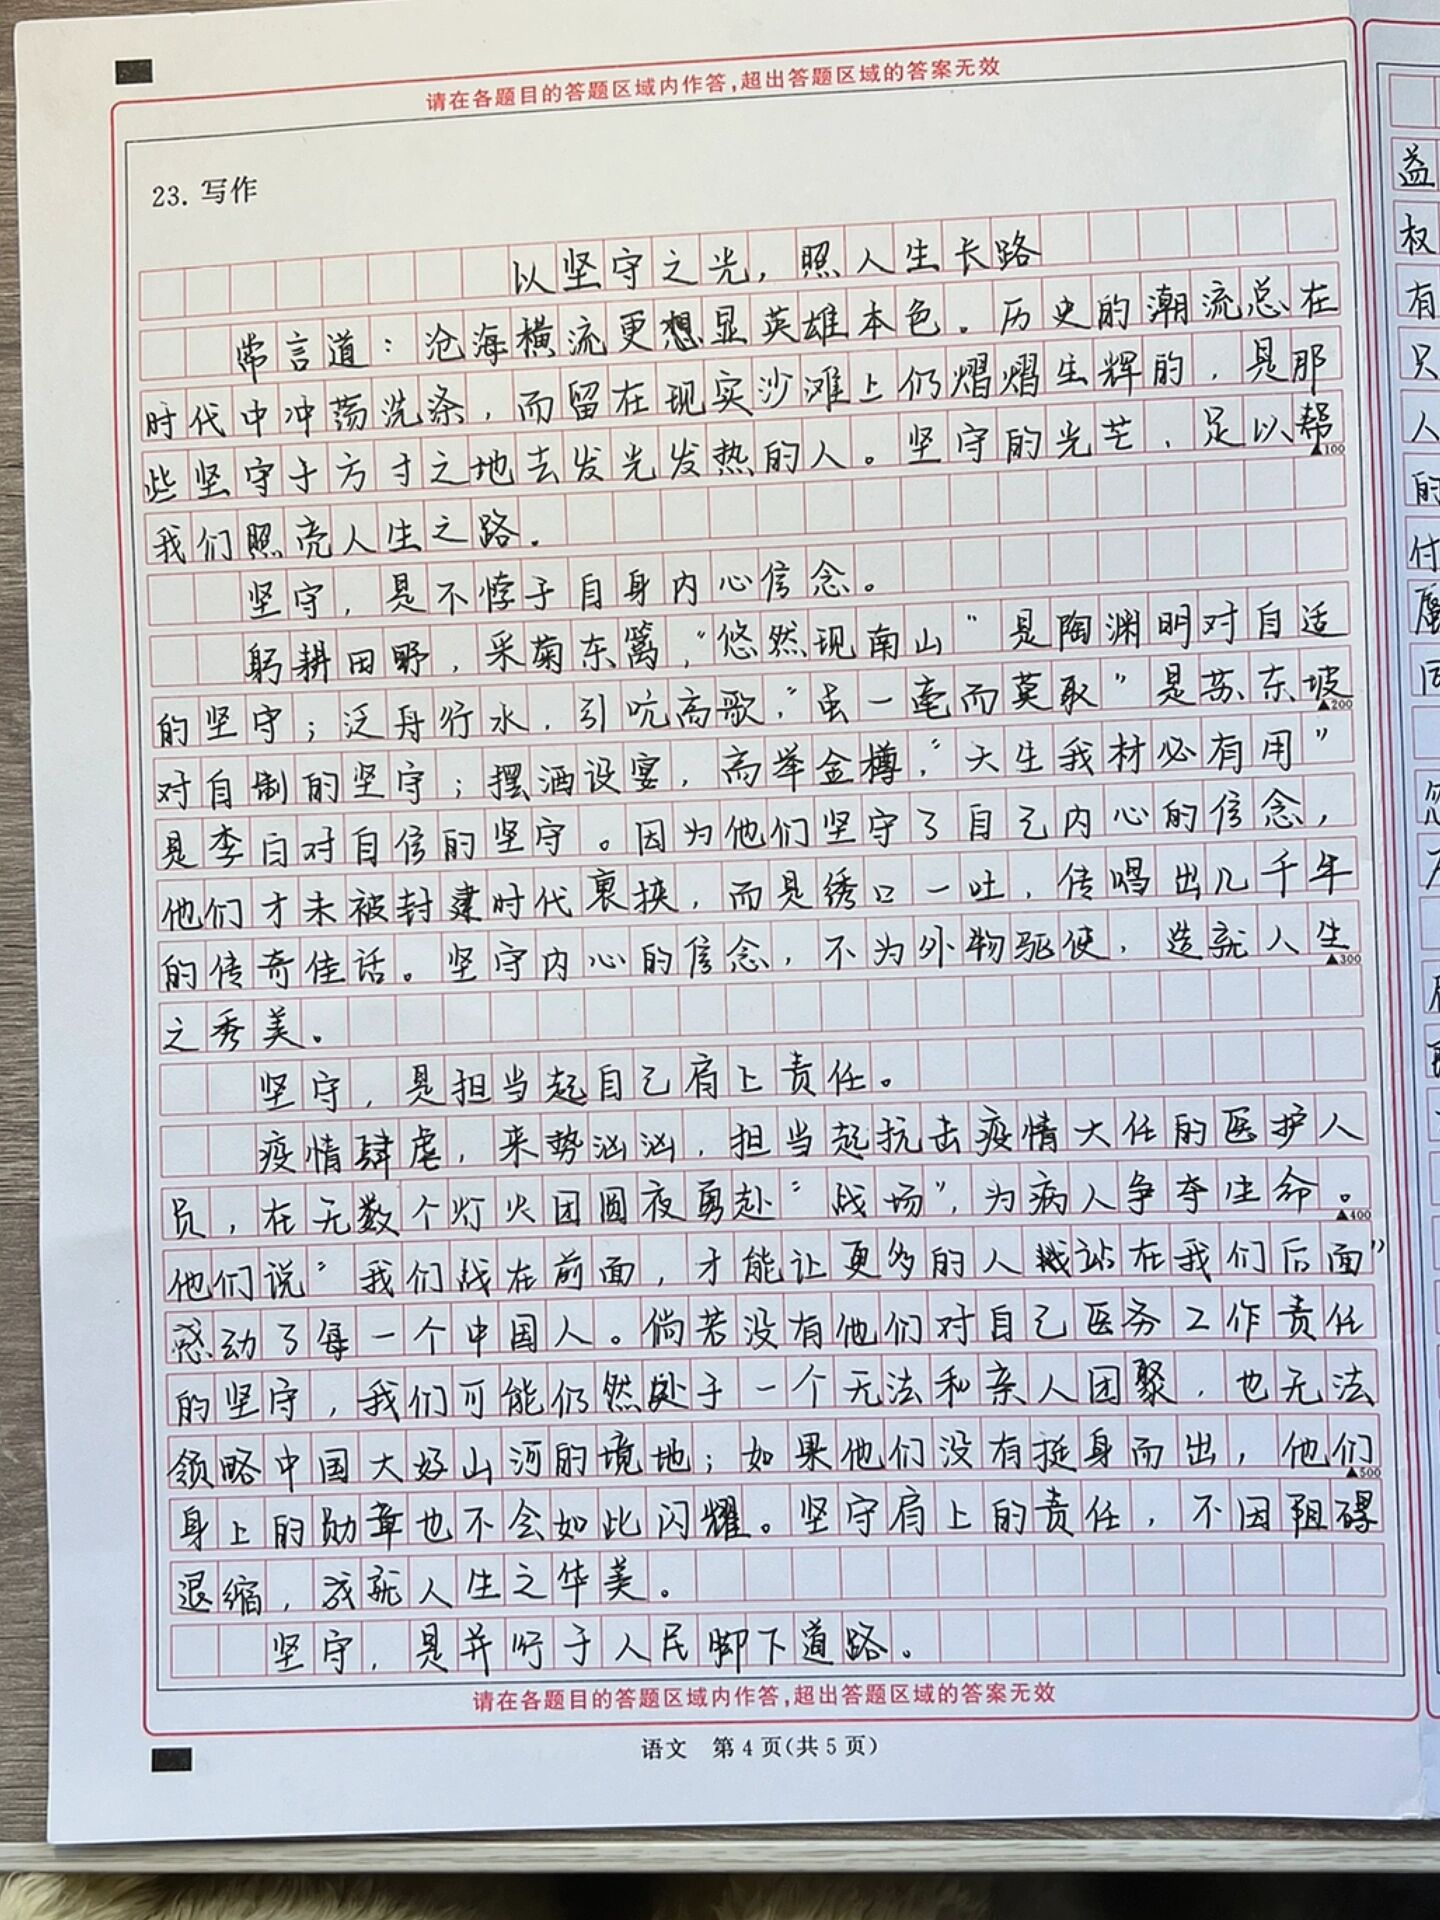 请在各题目的答题区域内作答,超出答题区域的答案无效
23. 写作
以坚守之光，照人生长路
常言道：沧海横流更想显英雄本色。历史的潮流总在
时代中冲荡洗涤，而留在现实沙滩上仍熠熠生辉的，是那
些坚守于方寸之地去发光发热的人。坚守的光芒，足以帮
▲100
我们照亮人生之路。
坚守，是不悖于自身内心信念。
躬耕田野，采菊东篱，“悠然现南山”是陶渊明对自适
的坚守；泛舟行水，引吭高歌，“虽一毫而莫取”是苏东坡
▲200
对自制的坚守；摆酒设宴，高举金樽，“天生我材必有用”
是李白对自信的坚守。因为他们坚守了自己内心的信念，
他们才未被封建时代裹挟，而是绣口一吐，传唱出几千年
的传奇佳话。坚守内心的信念，不为外物驱使，造就人生
▲300
之秀美。
坚守，是担当起自己肩上责任。
疫情肆虐，来势汹汹，担当起抗击疫情大任的医护人
员，在无数个灯火团圆夜勇赴“战场”，为病人争夺生命。
▲400
他们说“我们战在前面，才能让更多的人站在我们后面”
感动了每一个中国人。倘若没有他们对自己医务工作责任
的坚守，我们可能仍然处于一个无法和亲人团聚，也无法
领略中国大好山河的境地；如果他们没有挺身而出，他们
▲500
身上的勋章也不会如此闪耀。坚守肩上的责任，不因阻碍
退缩，成就人生之华美。
坚守，是并行于人民脚下道路。
请在各题目的答题区域内作答,超出答题区域的答案无效
语文 第4页(共5页)
益
权
有
只
人
的
付